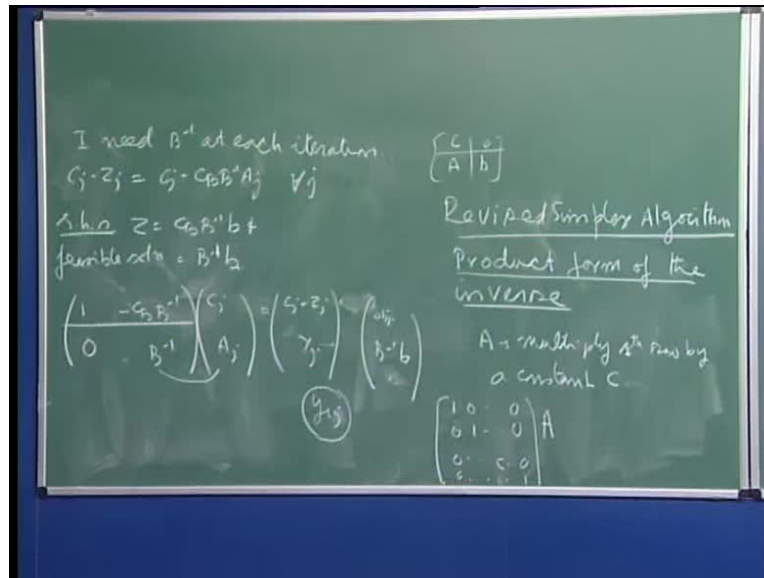 I need B⁻¹ at each iteration.
Cj - Zj = Cj - C_B B⁻¹ Aj ∀j
r.h.s Z = C_B B⁻¹ b +
feasible soln = B⁻¹ b
( 1 -C_B B⁻¹ ) ( Cj ) = ( Cj - Zj ) ( obj. )
( 0 B⁻¹ ) ( Aj ) ( Yj ) ( B⁻¹ b )
[ C | 0 ]
[ A | b ]
Revised Simplex Algorithm
Product form of the
inverse
A → multiply rth row by
a constant C.
( 1 0 .. 0 ) A
( 0 1 .. 0 )
( 0 .. c . 0 )